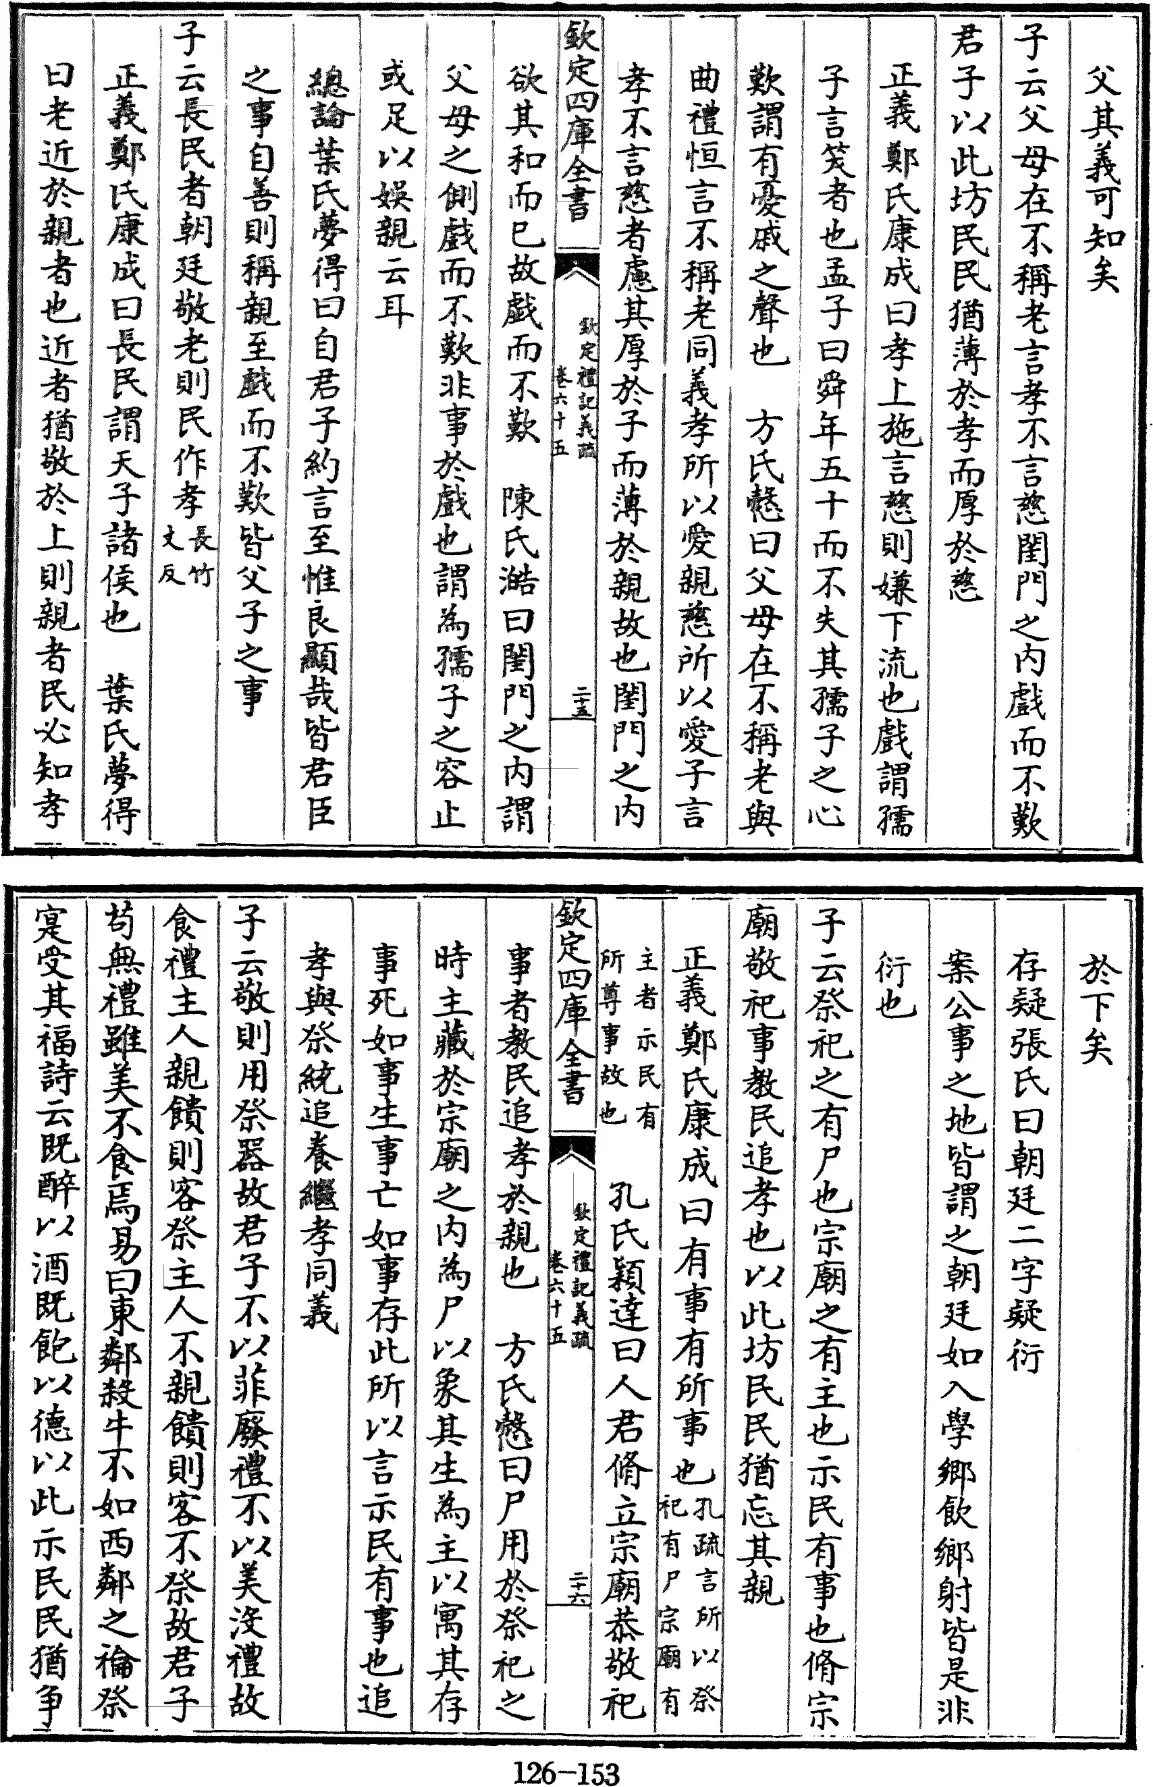 父其義可知矣
子云父母在不稱老言孝不言慈閨門之内戲而不歎
君子以此坊民民猶薄於孝而厚於慈
正義鄭氏康成曰孝上施言慈則嫌下流也戲謂孺
子言笑者也孟子曰舜年五十而不失其孺子之心
歎謂有憂戚之聲也　方氏慤曰父母在不稱老與
曲禮恒言不稱老同義孝所以愛親慈所以愛子言
孝不言慈者慮其厚於子而薄於親故也閨門之内
欽定四庫全書
欽定禮記義疏
卷六十五
二十五
欲其和而已故戲而不歎　陳氏澔曰閨門之内謂
父母之側戲而不歎非事於戲也謂為孺子之容止
或足以娛親云耳
總論葉氏夢得曰自君子約言至惟良顯哉皆君臣
之事自善則稱親至戲而不歎皆父子之事
子云長民者朝廷敬老則民作孝長竹
丈反
正義鄭氏康成曰長民謂天子諸侯也　葉氏夢得
曰老近於親者也近者猶敬於上則親者民必知孝
於下矣
存疑張氏曰朝廷二字疑衍
案公事之地皆謂之朝廷如入學鄉飲鄉射皆是非
衍也
子云祭祀之有尸也宗廟之有主也示民有事也脩宗
廟敬祀事教民追孝也以此坊民民猶忘其親
正義鄭氏康成曰有事有所事也孔疏言所以祭
祀有尸宗廟有
主者示民有
所尊事故也　孔氏穎達曰人君脩立宗廟恭敬祀
欽定四庫全書
欽定禮記義疏
卷六十五
二十六
事者教民追孝於親也　方氏慤曰尸用於祭祀之
時主藏於宗廟之内為尸以象其生為主以寓其存
事死如事生事亡如事存此所以言示民有事也追
孝與祭統追養繼孝同義
子云敬則用祭器故君子不以菲廢禮不以美沒禮故
食禮主人親饋則客祭主人不親饋則客不祭故君子
苟無禮雖美不食焉易曰東鄰殺牛不如西鄰之禴祭
寔受其福詩云既醉以酒既飽以德以此示民民猶争
126-153